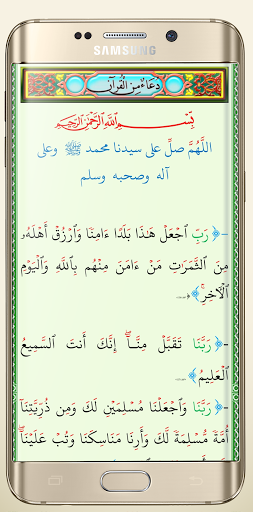 SAMSUNG
دُعَاءٌ مِنَ الْقُرْآنِ
بِسْمِ اللَّهِ الرَّحْمَٰنِ الرَّحِيمِ
اللَّهُمَّ صلِّ على سيدنا محمد ﷺ وعلى
آله وصحبه وسلم
-﴿ رَبِّ ٱجْعَلْ هَٰذَا بَلَدًا ءَامِنًا وَٱرْزُقْ أَهْلَهُۥ
مِنَ ٱلثَّمَرَٰتِ مَنْ ءَامَنَ مِنْهُم بِٱللَّهِ وَٱلْيَوْمِ
ٱلْأٓخِرِ ﴾
-﴿ رَبَّنَا تَقَبَّلْ مِنَّآ ۖ إِنَّكَ أَنتَ ٱلسَّمِيعُ
ٱلْعَلِيمُ ﴾
-﴿ رَبَّنَا وَٱجْعَلْنَا مُسْلِمَيْنِ لَكَ وَمِن ذُرِّيَّتِنَآ
أُمَّةً مُّسْلِمَةً لَّكَ وَأَرِنَا مَنَاسِكَنَا وَتُبْ عَلَيْنَآ ۖ